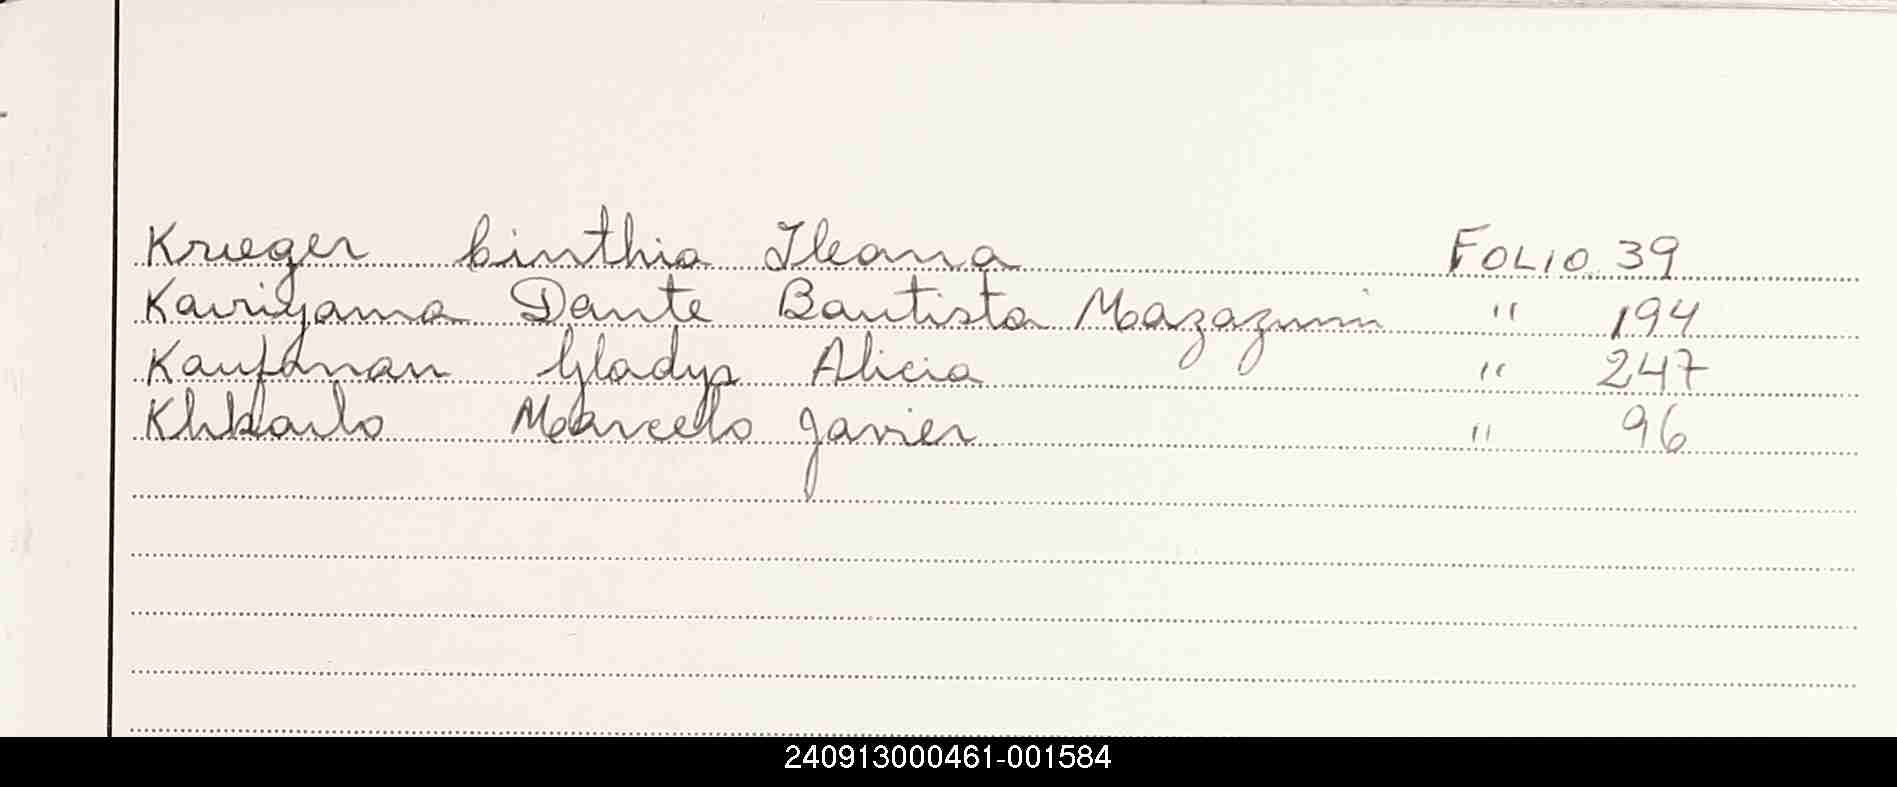 Krieger Cinthia Ileana FOLIO 39
Kairiyama Dante Bautista " 194
Kaufman Gladys Alicia " 247
Marcelo Javier " 96
240913000461-001584